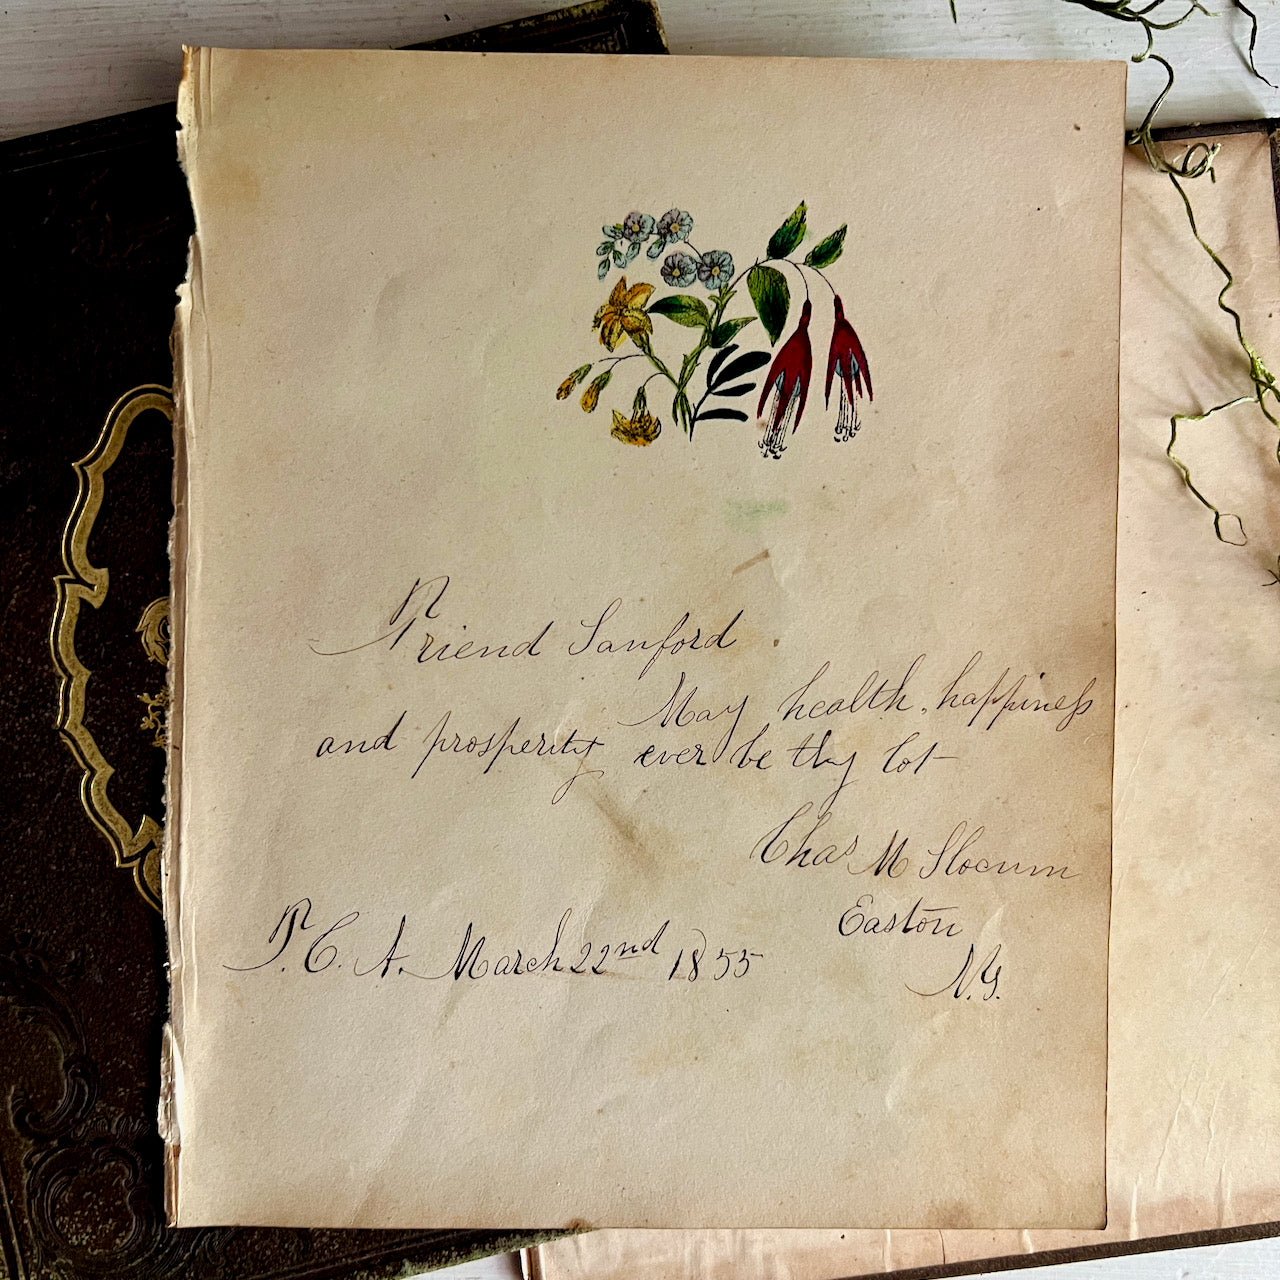 Friend Sanford
May health, happiness
and prosperity ever be thy lot
Chas M Slocum
Easton
N.Y.
F. C. A. March 22nd 1855